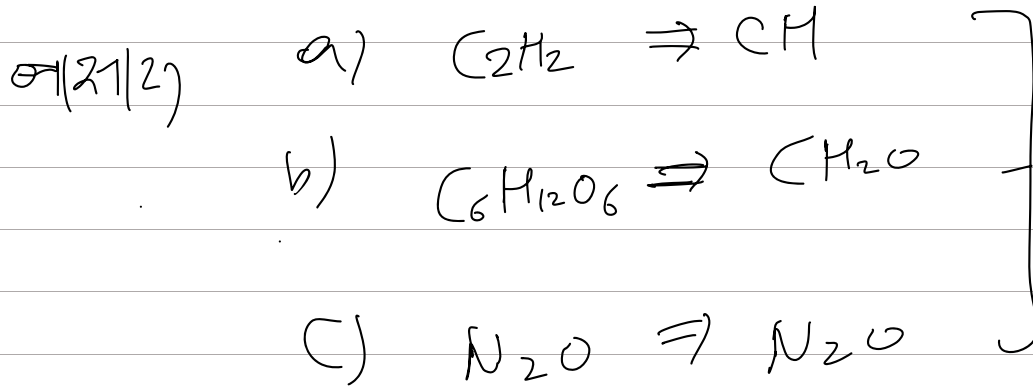 a) C₂H₂ ⇒ CH
b) C₆H₁₂O₆ ⇒ CH₂O
C) N₂O ⇒ N₂O